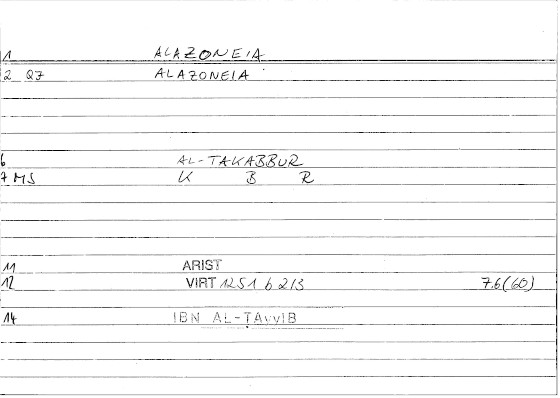 1 ALAZONEIA
2 Q7 ALAZONEIA
6 AL-TAKABBUR
7 MS K B R
11 ARIST
12 VIRT 1251 b 2/3 7.6(60)
14 IBN AL-TAyyIB